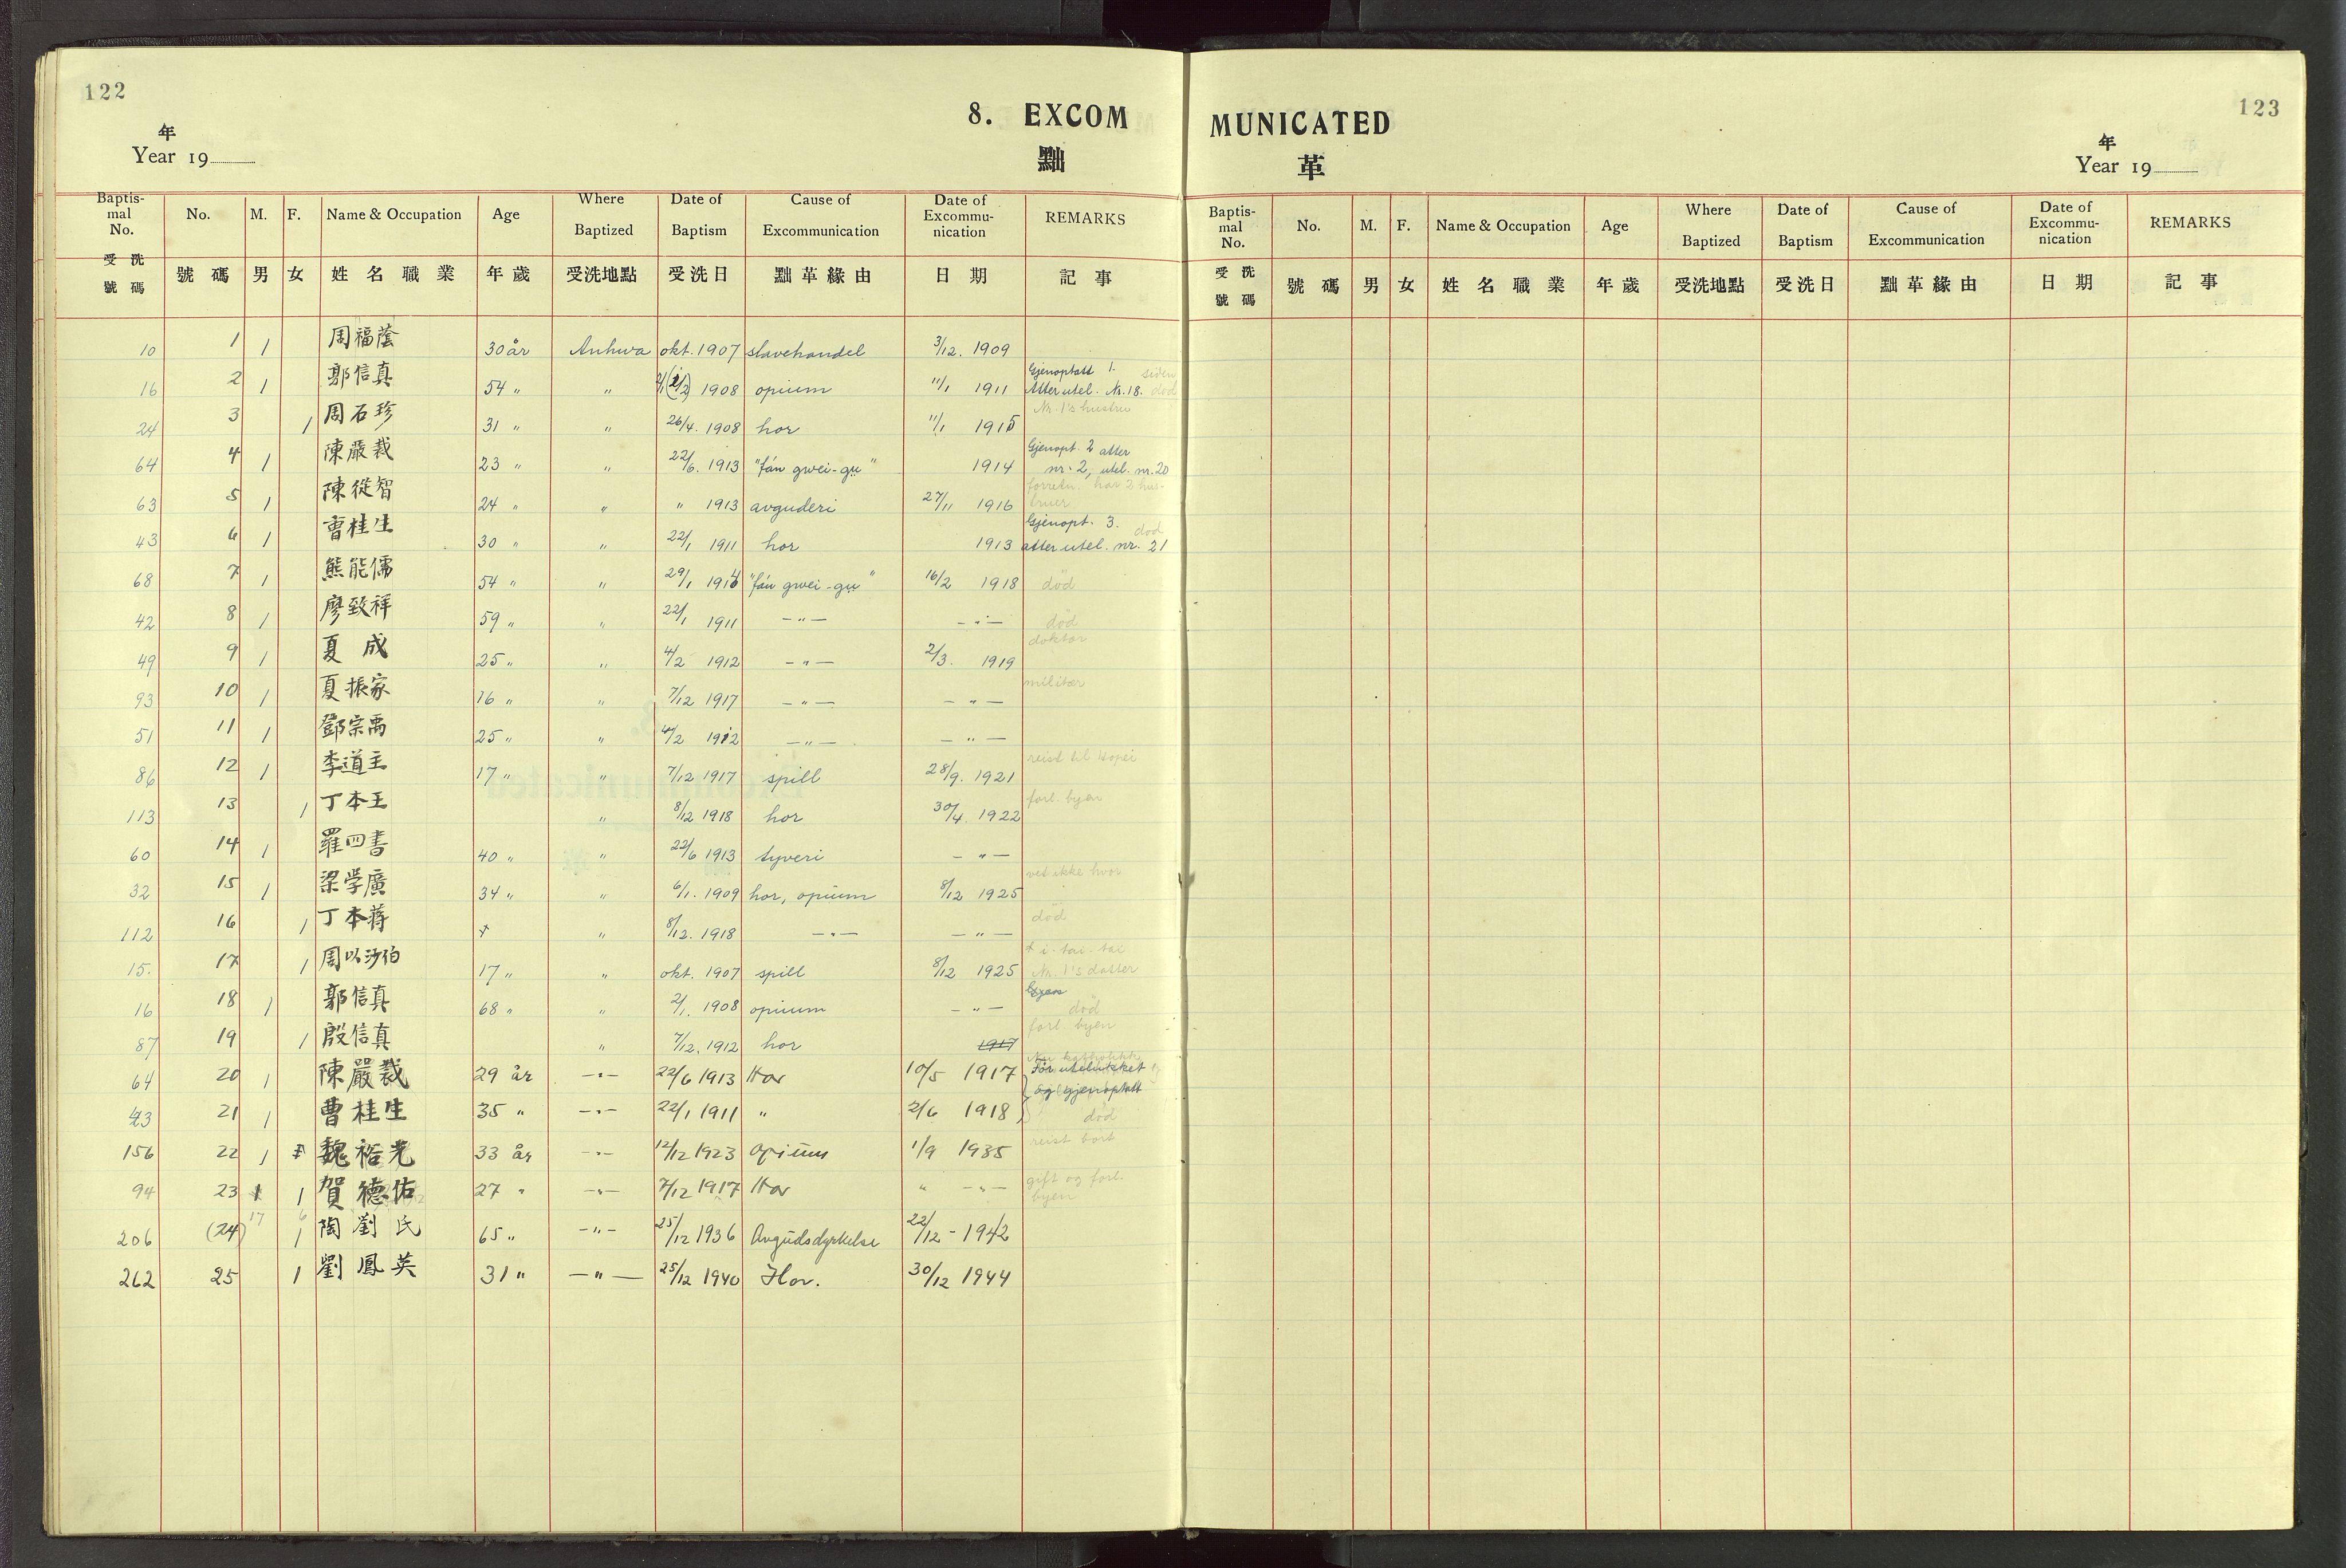 122
8. EXCOM
MUNICATED
123
黜
革
年
Year 19
年
Year 19
Baptismal No. No. M. F. Name & Occupation Age Where Baptized Date of Baptism Cause of Excommunication Date of Excommunication REMARKS
受洗號碼 號碼 男 女 姓名職業 年歲 受洗地點 受洗日 黜革緣由 日期 記事
Baptismal No. No. M. F. Name & Occupation Age Where Baptized Date of Baptism Cause of Excommunication Date of Excommunication REMARKS
受洗號碼 號碼 男 女 姓名職業 年歲 受洗地點 受洗日 黜革緣由 日期 記事
10 1 1 周福蔭 30 år Anhwa okt. 1907 slavehandel 3/12. 1909
16 2 1 郭信真 54 " " 1908 opium 11/1 1911 Gjenoptatt 1. siden Atter utel. Nr. 18. død
24 3 1 周石珍 31 " " 26/4. 1908 hor 11/1 1915 Nr. 1's hustru
64 4 1 陳嚴裁 23 " " 22/6. 1913 "fán gwei-gu" 1914 Gjenopt. 2 atter nr. 2, utel. nr. 20
63 5 1 陳從智 24 " " " 1913 avguderi 27/11 1916 forretn. har 2 hustruer
43 6 1 曹桂生 30 " " 22/1 1911 hor 1913 Gjenopt. 3. død atter utel. nr. 21
68 7 1 熊能儒 54 " " 29/1 1914 "fán gwei-gu" 16/2 1918 død
42 8 1 廖致祥 59 " " 22/1 1911 —"— —"— død
49 9 1 夏成 25 " " 4/2 1912 —"— 2/3. 1919 doktor
93 10 1 夏振家 16 " " 7/12 1917 —"— —"— militær
51 11 1 鄧宗禹 25 " " 4/2 1912 —"— —"—
86 12 1 李道主 17 " " 7/12 1917 spill 28/9. 1921 reist til Hopei
113 13 1 丁本王 " 8/12 1918 hor 30/4. 1922 forl. byen
60 14 1 羅四書 40 " " 22/6 1913 tyveri —"—
32 15 1 梁学廣 34 " " 6/1. 1909 hor, opium 8/12 1925 vet ikke hvor
112 16 1 丁本蒋 " 8/12. 1918 —"— —"— død
15. 17 1 周以沙伯 17 " " okt. 1907 spill 8/12 1925 Nr. 1's datter
16 18 1 郭信真 68 " " 2/1. 1908 opium —"— død
87 19 1 殷信真 " 7/12. 1912 hor 1917 forl byen
64 20 1 陳嚴裁 29 år —"— 22/6 1913 Hor 10/5 1917 Før utelukket og gjenoptatt
43 21 1 曹桂生 35 " —"— 22/1 1911 " 2/6 1918 død
156 22 1 魏裕光 33 år —"— 12/12 1923 Opium 1/9 1935 reist bort
94 23 1 賀德佑 27 " —"— 7/12 1917 Hor " —"— gift og forl. byen
17 6
206 (24) 1 陶劉氏 65 " —"— 25/12 1936 Avgudsdyrkelse 22/12 - 1942
262 25 1 劉鳳英 31 " —"— 25/12 1940 Hor. 30/12 1944